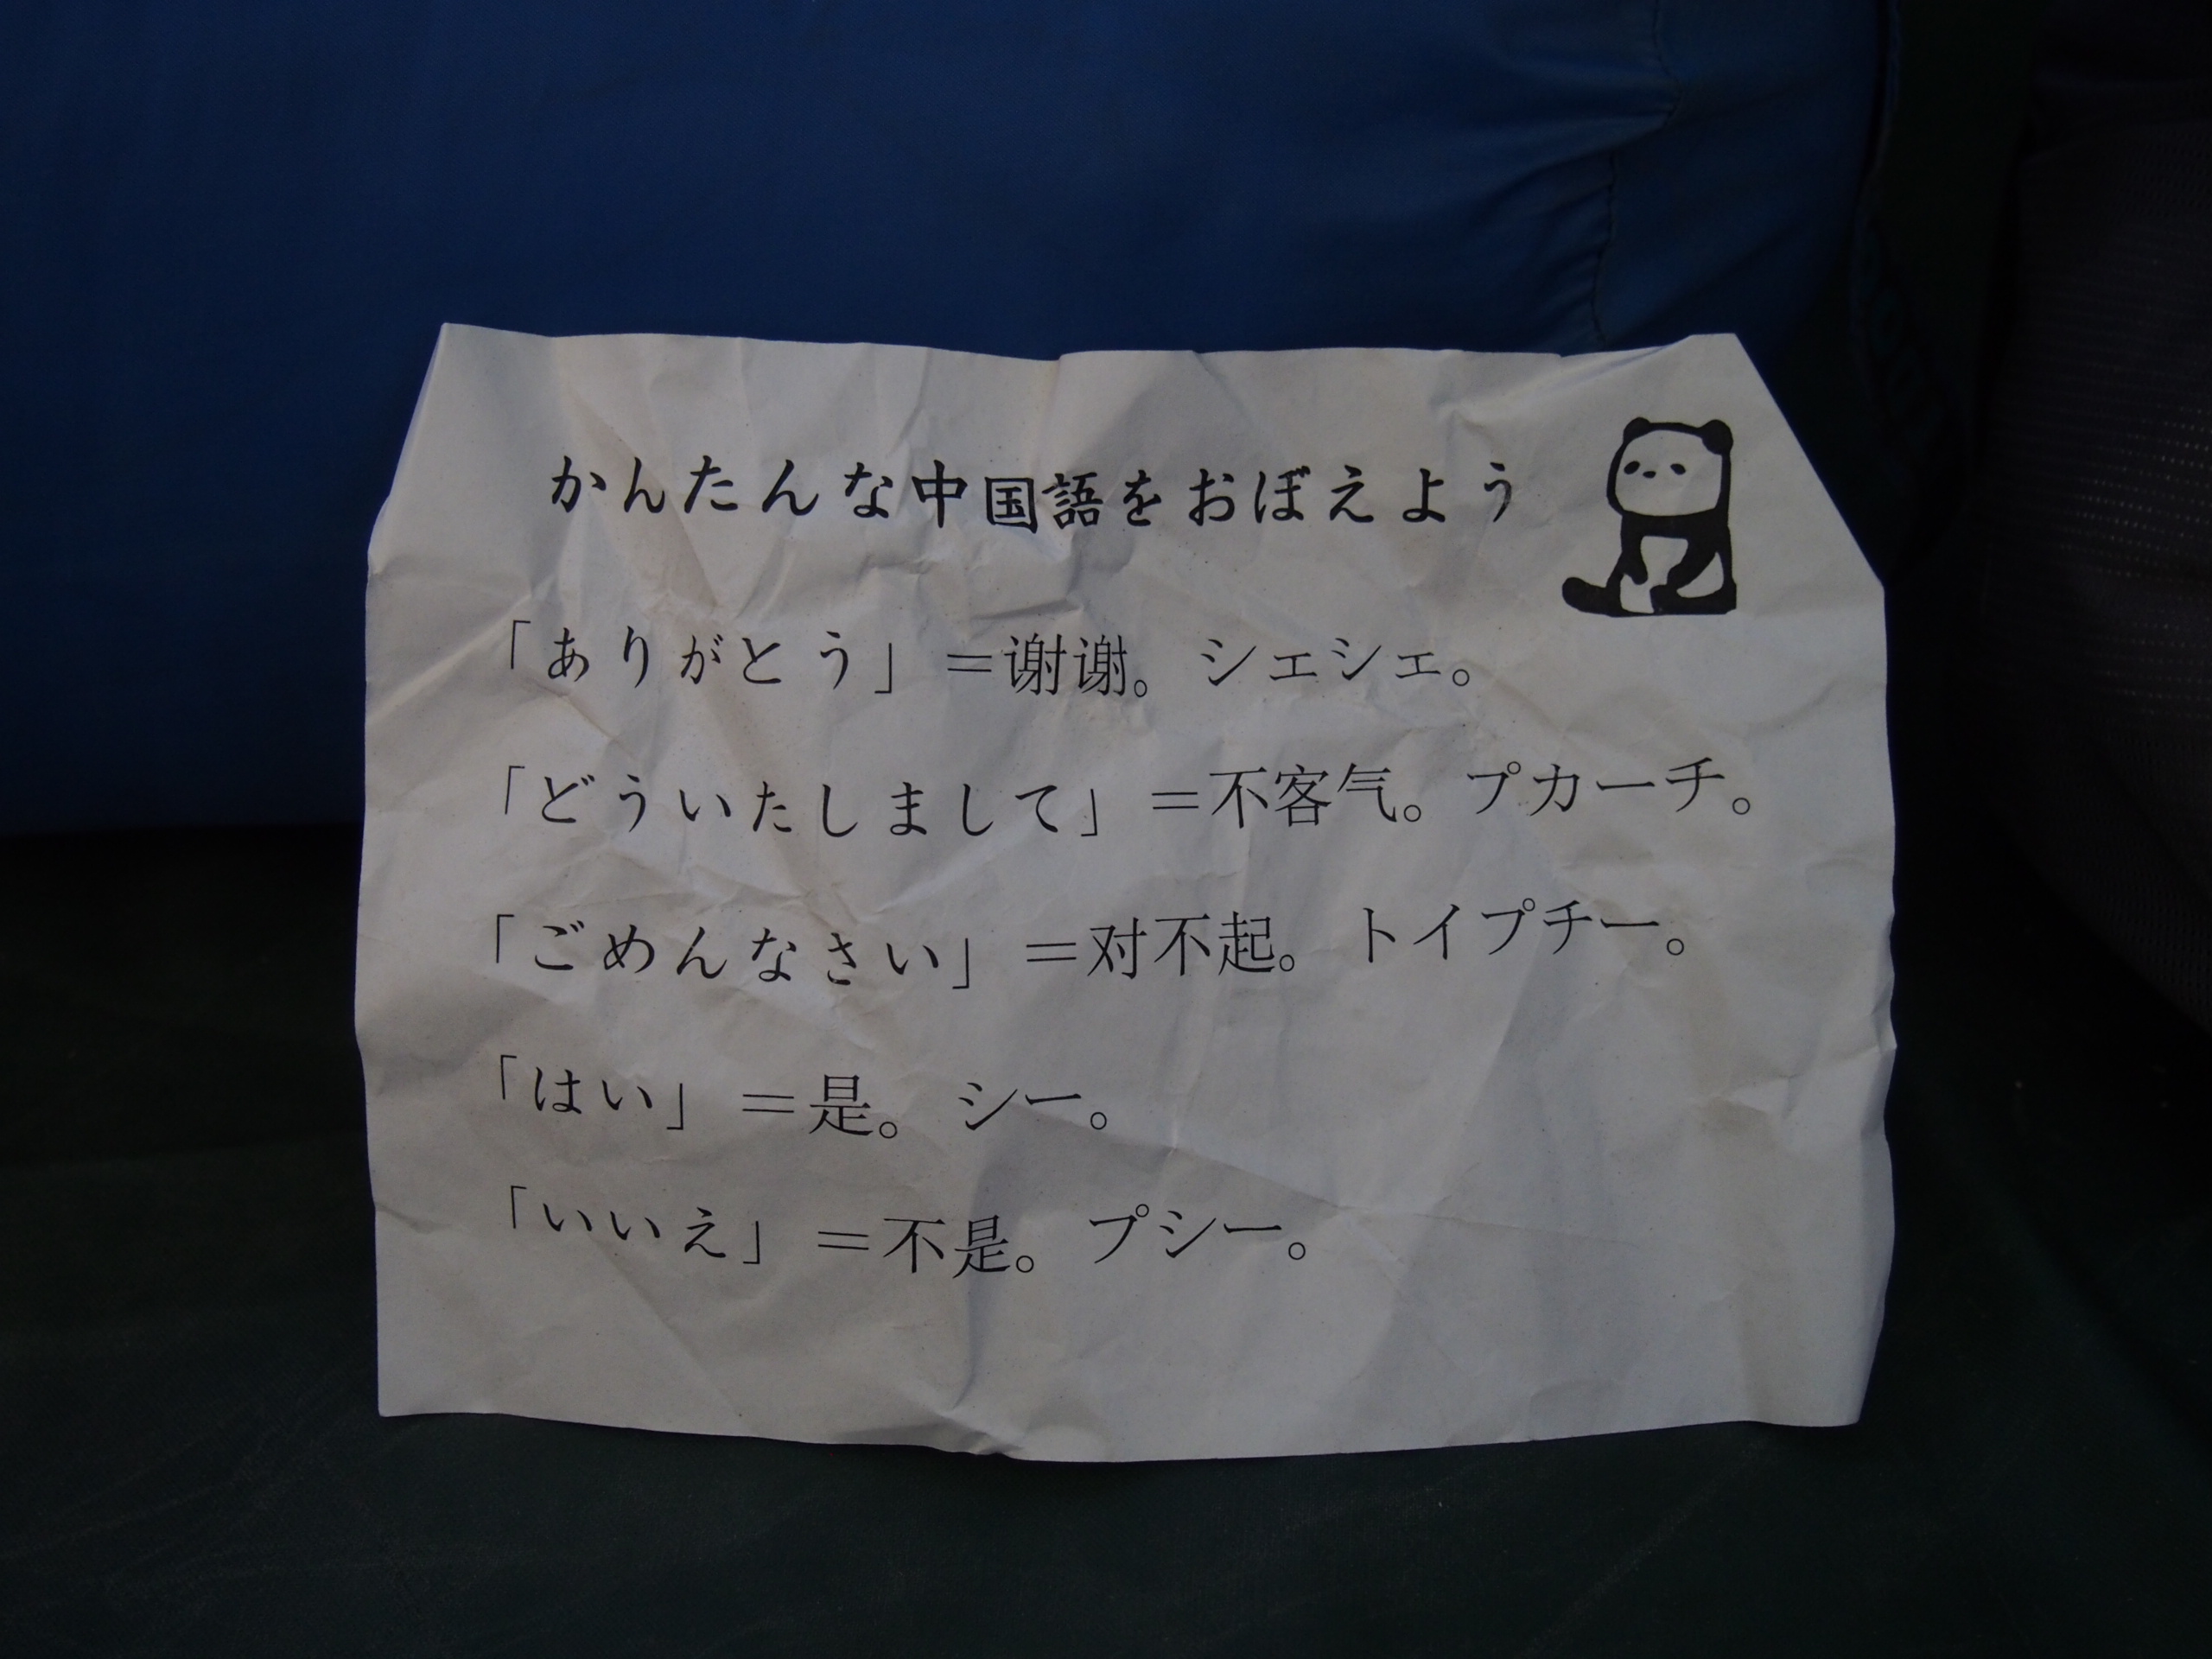 かんたんな中国語をおぼえよう
「ありがとう」＝谢谢。 シェシェ。
「どういたしまして」＝不客气。プカーチ。
「ごめんなさい」＝对不起。 トイプチー。
「はい」＝是。 シー。
「いいえ」＝不是。プシー。